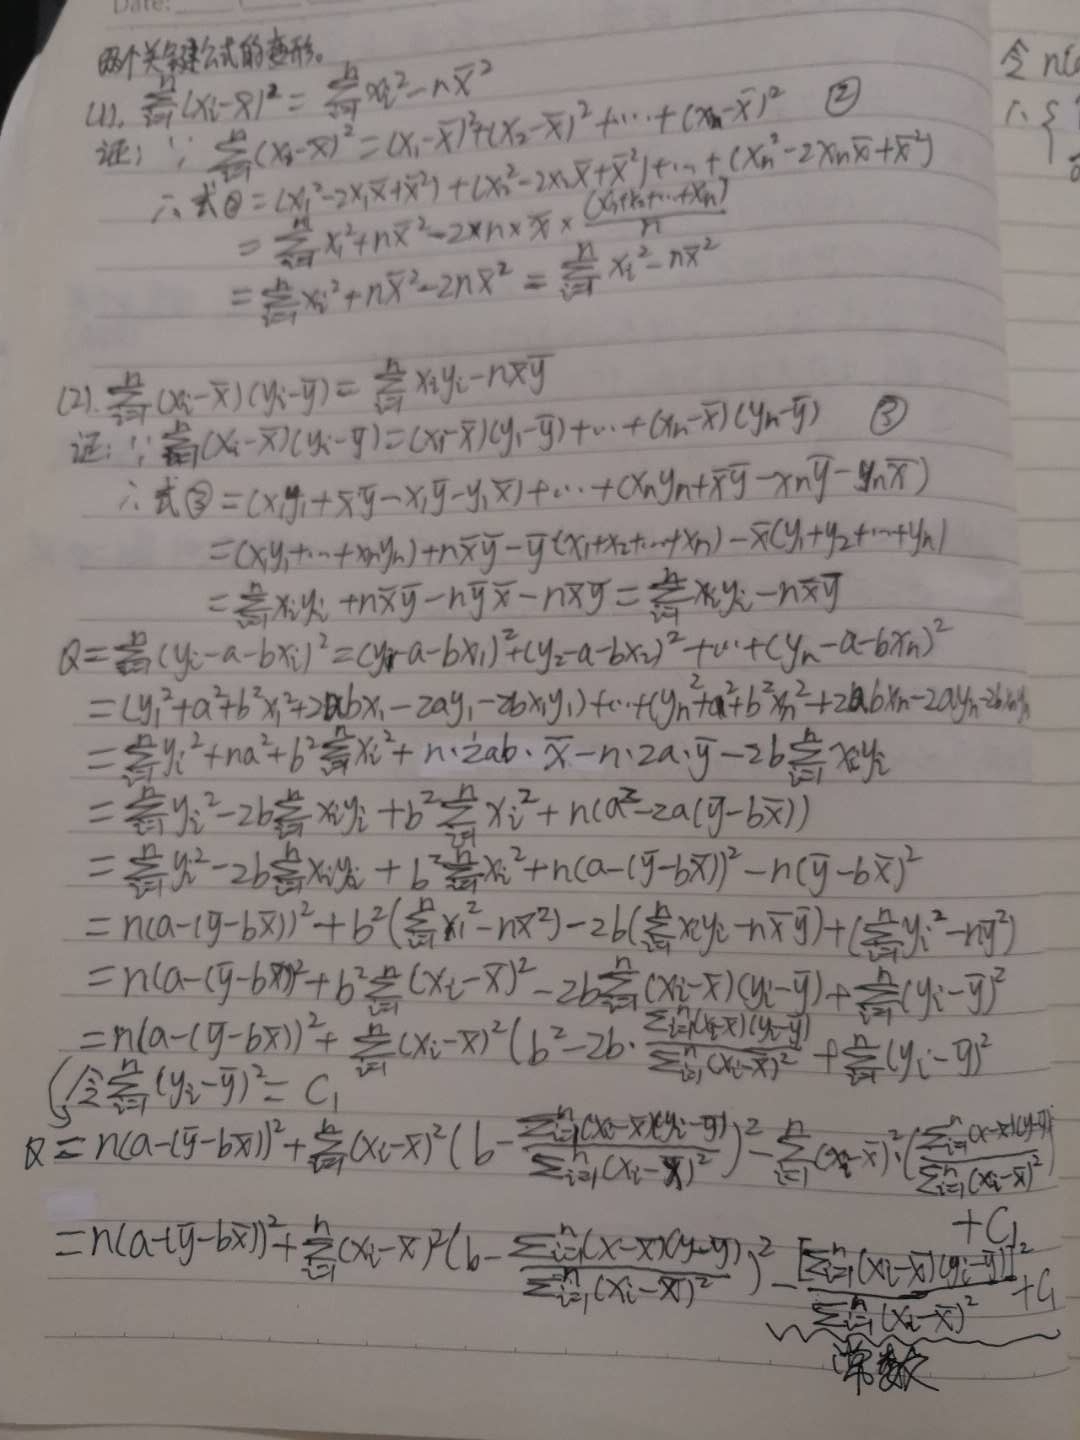 Date:
两个关键公式的变形。
(1). ∑_{i=1}^{n}(xi-x̄)² = ∑_{i=1}^{n}xi²-nx̄²
证: ∵ ∑_{i=1}^{n}(xi-x̄)²=(x₁-x̄)²+(x₂-x̄)²+…+(xn-x̄)² ②
∴ 式②=(x₁²-2x₁x̄+x̄²)+(x₂²-2x₂x̄+x̄²)+…+(xn²-2xnx̄+x̄²)
=∑_{i=1}^{n}xi²+nx̄²-2×n×x̄×(x₁+x₂+…+xn)/n
=∑_{i=1}^{n}xi²+nx̄²-2nx̄²=∑_{i=1}^{n}xi²-nx̄²
(2). ∑_{i=1}^{n}(xi-x̄)(yi-ȳ)=∑_{i=1}^{n}xiyi-nx̄ȳ
证: ∵ ∑_{i=1}^{n}(xi-x̄)(yi-ȳ)=(x₁-x̄)(y₁-ȳ)+…+(xn-x̄)(yn-ȳ) ③
∴ 式③=(x₁y₁+x̄ȳ-x₁ȳ-y₁x̄)+…+(xnyn+x̄ȳ-xnȳ-ynx̄)
=(x₁y₁+…+xnyn)+nx̄ȳ-ȳ(x₁+x₂+…+xn)-x̄(y₁+y₂+…+yn)
=∑_{i=1}^{n}xiyi+nx̄ȳ-nȳx̄-nx̄ȳ=∑_{i=1}^{n}xiyi-nx̄ȳ
Q=∑_{i=1}^{n}(yi-a-bxi)²=(y₁-a-bx₁)²+(y₂-a-bx₂)²+…+(yn-a-bxn)²
=(y₁²+a²+b²x₁²+2abx₁-2ay₁-2bx₁y₁)+…+(yn²+a²+b²xn²+2abxn-2ayn-2bxnyn
=∑_{i=1}^{n}yi²+na²+b²∑_{i=1}^{n}xi²+n·2ab·x̄-n·2a·ȳ-2b∑_{i=1}^{n}xiyi
=∑_{i=1}^{n}yi²-2b∑_{i=1}^{n}xiyi+b²∑_{i=1}^{n}xi²+n(a²-2a(ȳ-bx̄))
=∑_{i=1}^{n}yi²-2b∑_{i=1}^{n}xiyi+b²∑_{i=1}^{n}xi²+n(a-(ȳ-bx̄))²-n(ȳ-bx̄)²
=n(a-(ȳ-bx̄))²+b²(∑_{i=1}^{n}xi²-nx̄²)-2b(∑_{i=1}^{n}xiyi-nx̄ȳ)+(∑_{i=1}^{n}yi²-nȳ²)
=n(a-(ȳ-bx̄))²+b²∑_{i=1}^{n}(xi-x̄)²-2b∑_{i=1}^{n}(xi-x̄)(yi-ȳ)+∑_{i=1}^{n}(yi-ȳ)²
=n(a-(ȳ-bx̄))²+∑_{i=1}^{n}(xi-x̄)²(b²-2b·∑_{i=1}^{n}(xi-x̄)(yi-ȳ)/∑_{i=1}^{n}(xi-x̄)²+∑_{i=1}^{n}(yi-ȳ)²
令∑_{i=1}^{n}(yi-ȳ)²=C₁
Q=n(a-(ȳ-bx̄))²+∑_{i=1}^{n}(xi-x̄)²(b-∑_{i=1}^{n}(xi-x̄)(yi-ȳ)/∑_{i=1}^{n}(xi-x̄)²)²-∑_{i=1}^{n}(xi-x̄)²·(∑_{i=1}^{n}(x-x̄)(y-ȳ)/∑_{i=1}^{n}(xi-x̄)²)
+C₁
=n(a-(ȳ-bx̄))²+∑_{i=1}^{n}(xi-x̄)²(b-∑_{i=1}^{n}(x-x̄)(y-ȳ)/∑_{i=1}^{n}(xi-x̄)²)²-[∑_{i=1}^{n}(xi-x̄)(yi-ȳ)]²/∑_{i=1}^{n}(xi-x̄)²+C₁
常数
令 n(
∴ {